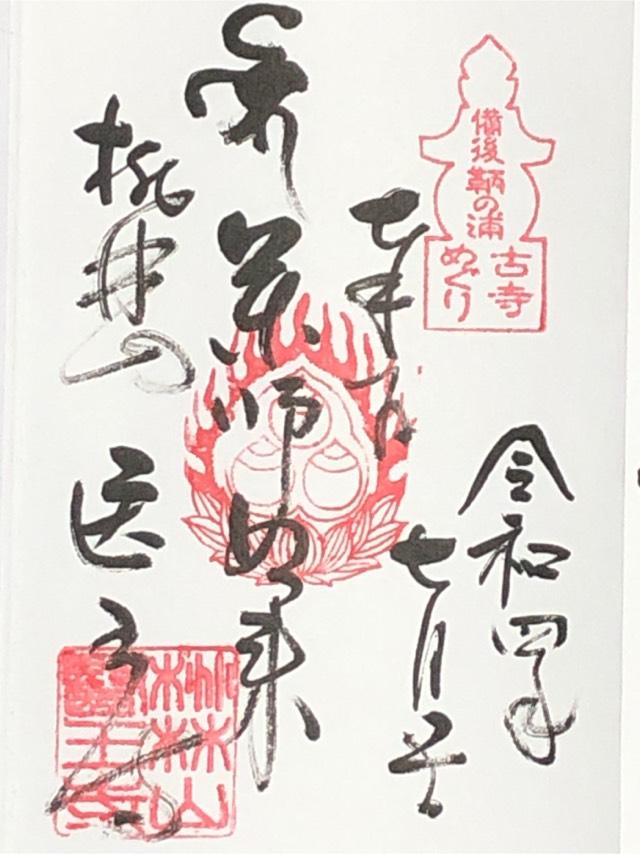 備後鞆の浦
古寺
めぐり
令和四年
七月
奉拝
薬師如来
桃林山 医王寺
桃林山
醫王寺